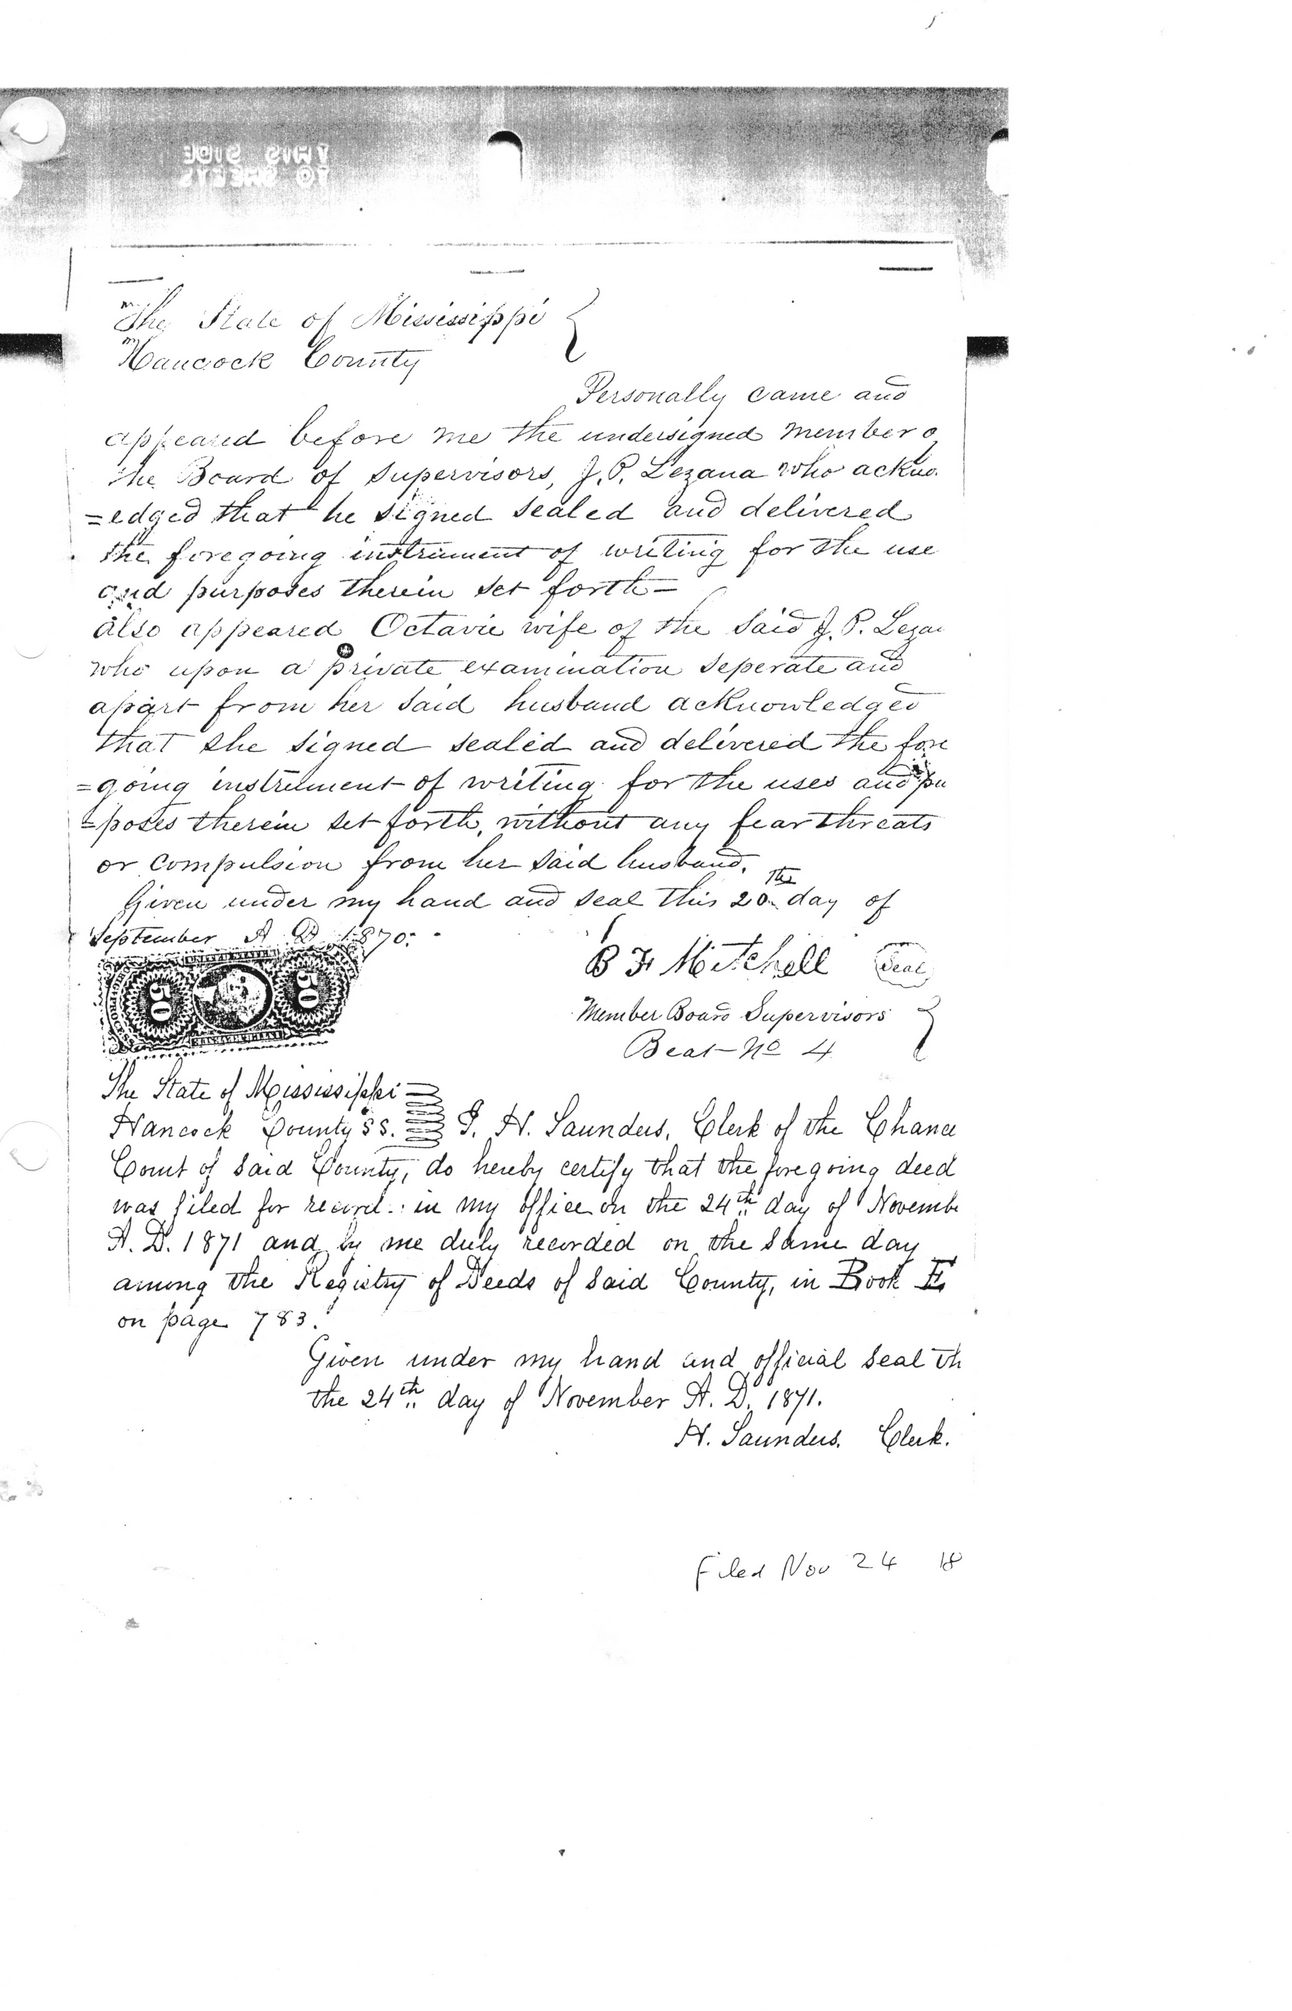 The State of Mississippi
Hancock County
Personally came and
appeared before me the undersigned member o
the Board of supervisors, J. P. Lezana who acknow
=edged that he signed sealed and delivered
the foregoing instrument of writing for the use
and purposes therein set forth—
also appeared Octavie wife of the said J. P. Lezan
who upon a private examination seperate and
apart from her said husband acknowledged
that she signed sealed and delivered the fore
=going instrument of writing for the uses and pu
=poses therein set forth, without any fear threats
or compulsion from her said husband.
Given under my hand and seal this 20th day of
September A D 1870.
B F Mitchell Seal
Member Board Supervisors
Beat No 4
50
50
The State of Mississippi
Hancock County SS. I. H. Saunders, Clerk of the Chance
Court of said County, do hereby certify that the foregoing deed
was filed for record in my office on the 24th day of Novembe
A. D. 1871 and by me duly recorded on the same day
among the Registry of Deeds of said County, in Book E
on page 783.
Given under my hand and official seal th
the 24th day of November A. D. 1871.
H. Saunders. Clerk.
Filed Nov 24 18